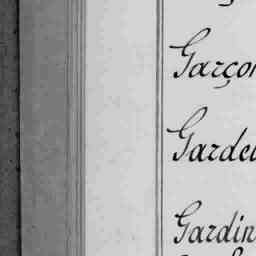 Garçon
Gardel
Gardin